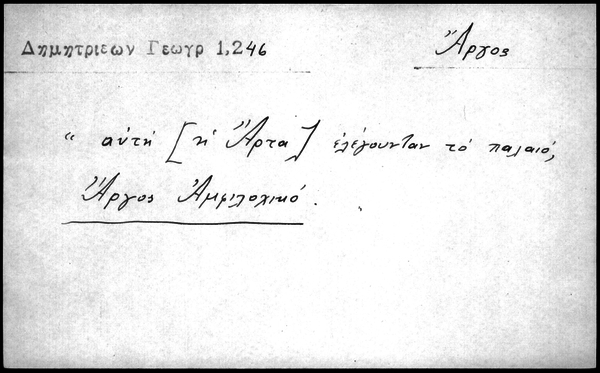 Δημητριεων Γεωγρ 1,246
Ἄργος
“ αὐτή [ἡ Ἄρτα] ἐλέγουνταν τό παλαιό,
Ἄργος Ἀμφιλοχικό.